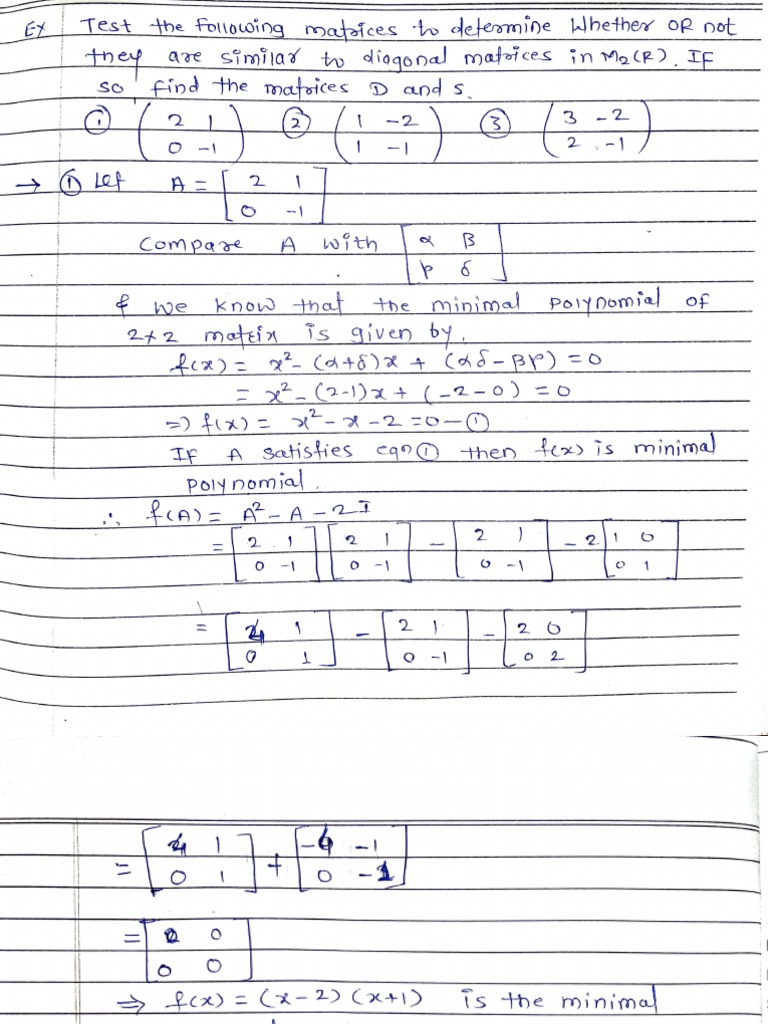 Ex Test the following matrices to determine Whether OR not
they are similar to diagonal matrices in M₂(R). If
so find the matrices D and S.
① (2 1 / 0 -1) ② (1 -2 / 1 -1) ③ (3 -2 / 2 -1)
→ ① Let A = [2 1 / 0 -1]
Compare A with [α β / γ δ]
& we know that the minimal polynomial of
2×2 matrix is given by,
f(x) = x² - (α+δ)x + (αδ - βγ) = 0
= x² - (2-1)x + (-2-0) = 0
⇒ f(x) = x² - x - 2 = 0 — ①
If A satisfies eqn ① then f(x) is minimal
polynomial.
∴ f(A) = A² - A - 2I
= [2 1 / 0 -1] [2 1 / 0 -1] - [2 1 / 0 -1] - 2 [1 0 / 0 1]
= [4 1 / 0 1] - [2 1 / 0 -1] - [2 0 / 0 2]
= [4 1 / 0 1] + [-4 -1 / 0 -1]
= [0 0 / 0 0]
⇒ f(x) = (x-2) (x+1) is the minimal